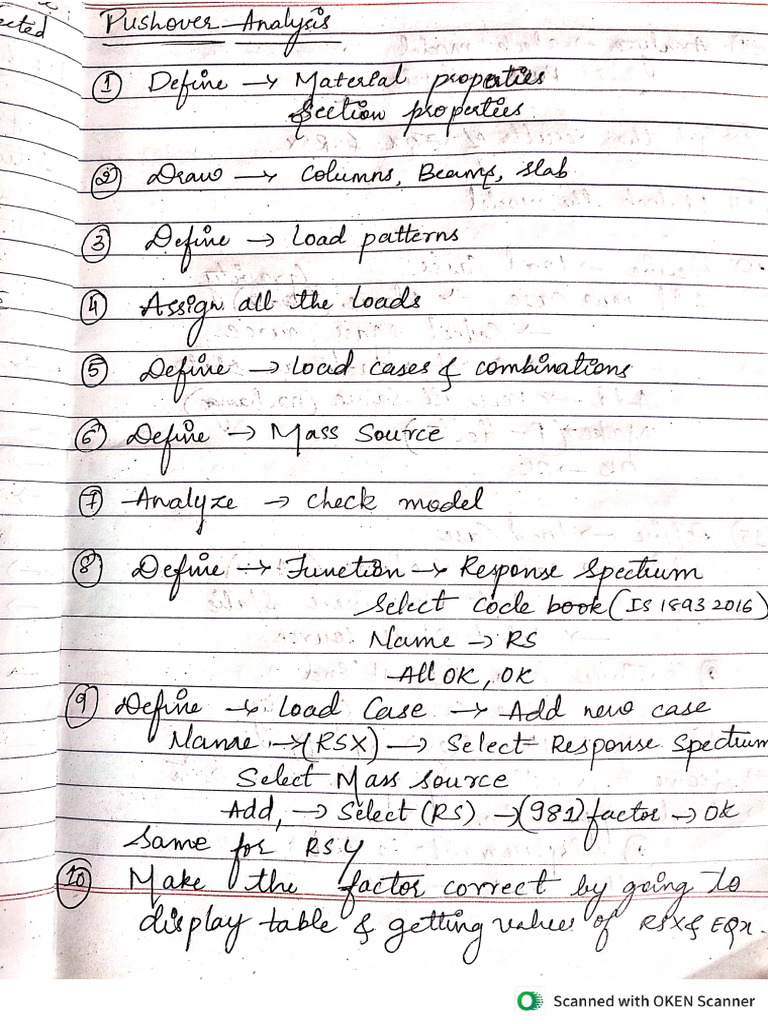 ected
Pushover Analysis
① Define → Material properties
Section properties
② Draw → Columns, Beams, slab
③ Define → Load patterns
④ Assign all the loads
⑤ Define → Load cases & combinations
⑥ Define → Mass Source
⑦ Analyze → check model
⑧ Define → Function → Response Spectrum
Select code book (IS 1893 2016)
Name → RS
All OK, OK
⑨ Define → Load Case → Add new case
Name → (RSX) → Select Response Spectrum
Select Mass source
Add, → Select (RS) → (981) factor → OK
Same for RSY
⑩ Make the factor correct by going to
display table & getting values of RSX & EQx.
Scanned with OKEN Scanner